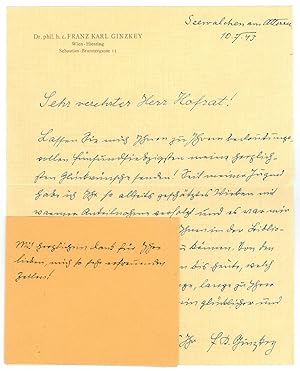 Dr. phil. h. c. FRANZ KARL GINZKEY
Wien-Hietzing
Sebastian-Brunnergasse 15
Seewalchen am Attersee
10.7.43
Sehr verehrter Herr Hofrat!
Lassen Sie mich Ihnen zu Ihrem bedeutungs-
vollen Fünfundsiebzigsten meine herzlich-
sten Glückwünsche senden! Seit meiner Jugend
habe ich Ihr so allseits geschätztes Wirken mit
warmer Anteilnahme verfolgt und es war mir
Ihnen in der Biblio-
zu können. Von den
bis heute, welch
lange zu Ihrer
ein glücklicher und
Ihr F. K. Ginzkey
Mit herzlichem Dank für Ihre
lieben, mich so sehr erfreuenden
Zeilen!